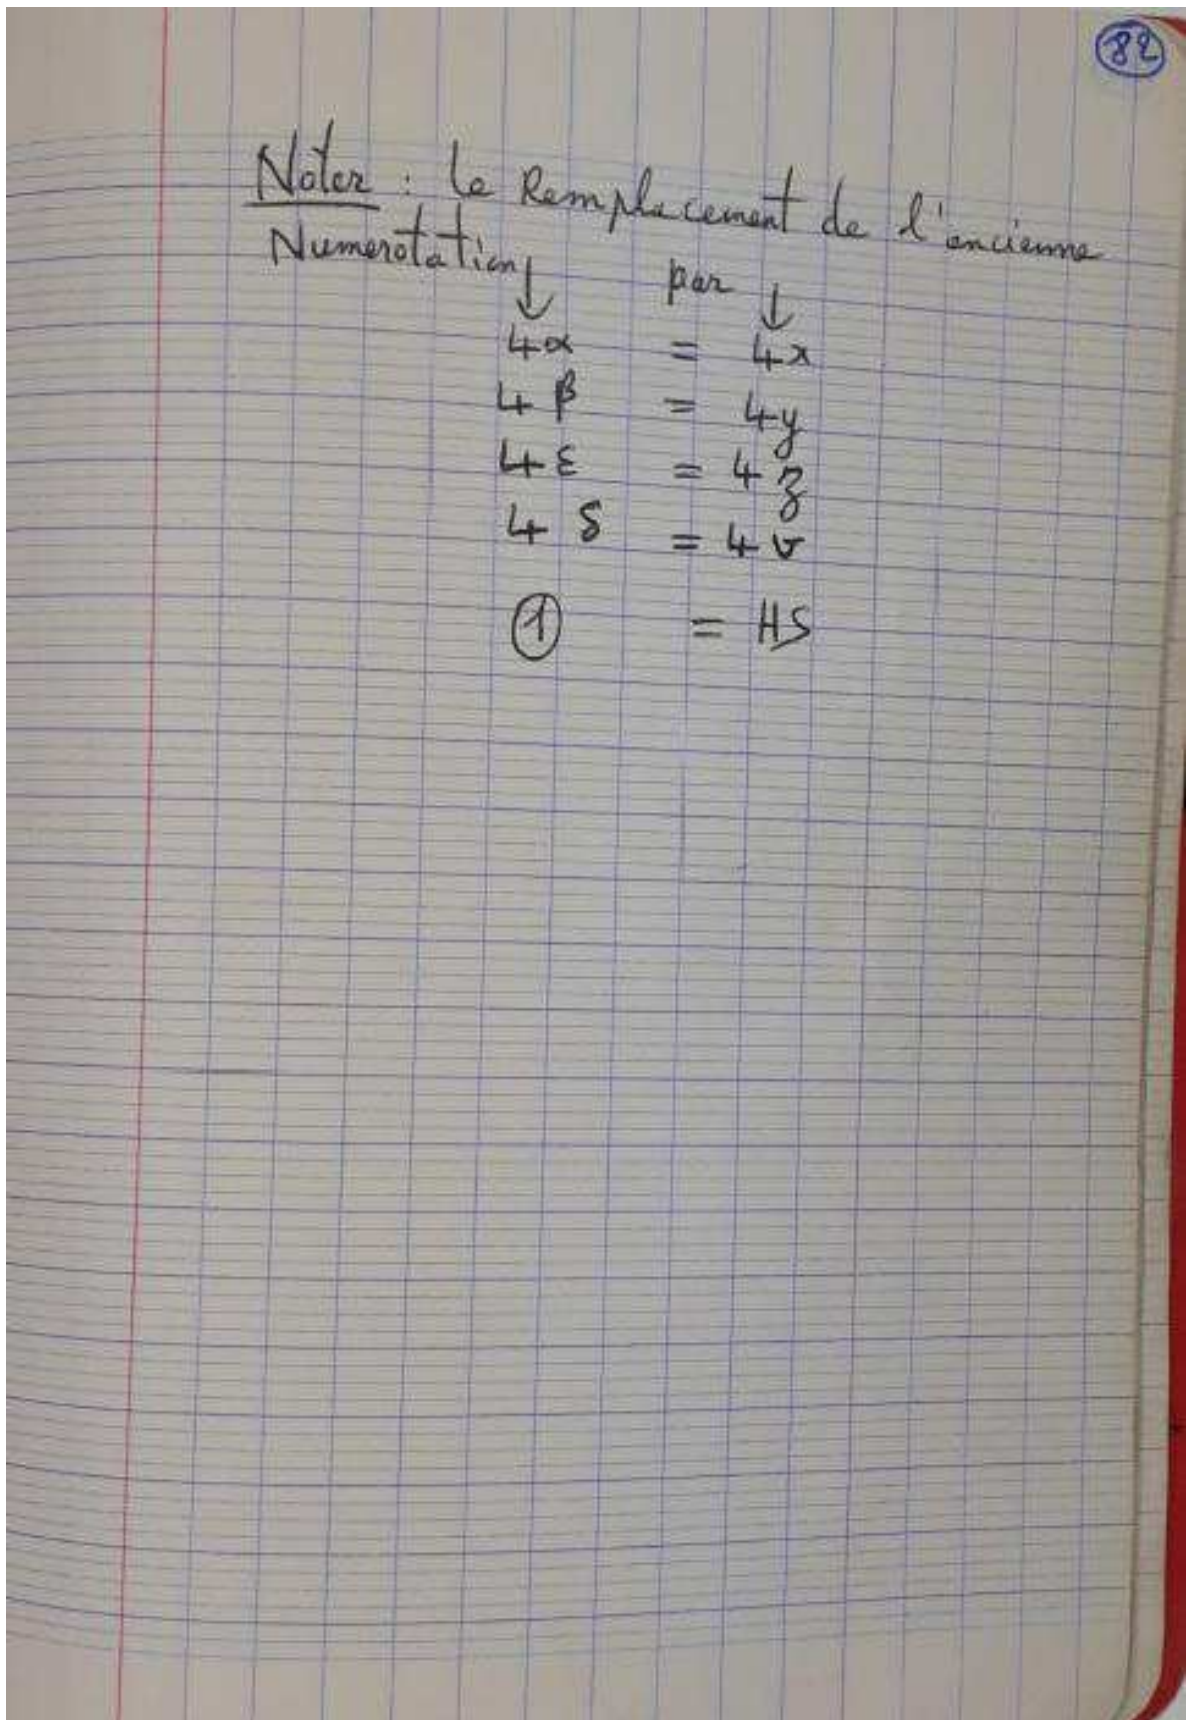 82
Noter : le Remplacement de l'ancienne
Numerotation ↓ par ↓
4α = 4x
4β = 4y
4ε = 4z
4δ = 4v
① = HS